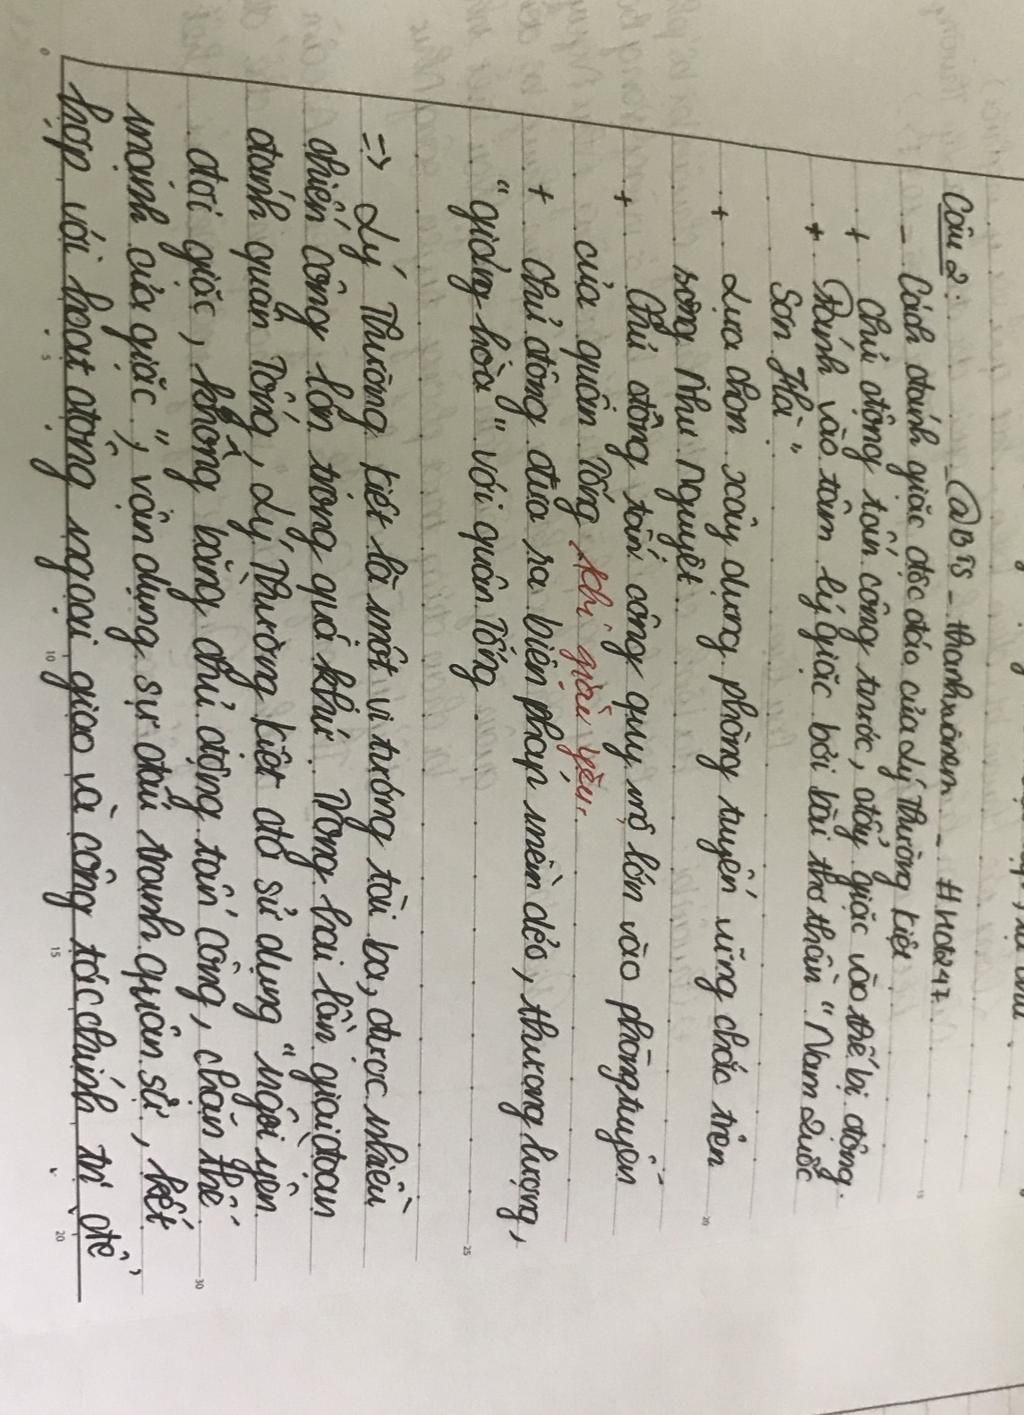 @BTS - thanhmônem - #Hocb247
Câu 2:
- Cách đánh giặc độc đáo của Lý Thường Kiệt
+ Chủ động tấn công trước, đẩy giặc vào thế bị động.
+ Đánh vào tâm lý giặc bởi bài thơ thần "Nam Quốc
Sơn Hà"
+ Lựa chọn xây dựng phòng tuyến vững chắc trên
sông Như Nguyệt.
+ Chủ động tấn công quy mô lớn vào phòng tuyến
của quân Tống khi giặc yếu.
+ Chủ động đưa ra biện pháp mềm dẻo, thương lượng,
"giảng hòa" với quân Tống.
=> Lý Thường Kiệt là một vị tướng tài ba, được nhiều
chiến công lớn trong quá khứ. Trong hai lần giai đoạn
đánh quân Tống, Lý Thường Kiệt đã sử dụng "ngồi yên
đợi giặc, không bằng chủ động tấn công, chặn thế
mạnh của giặc", vận dụng sự đấu tranh quân sự, kết
hợp với hoạt động ngoại giao và công tác chính trị để